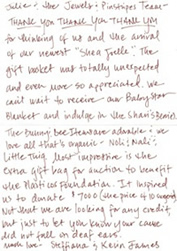 Julie + the Jewels + Pinstripes Team -
THANK YOU THANK YOU THANK YOU
for thinking of us and the arrival
of our newest "Shea Joelle". The
gift basket was totally unexpected
and even more so appreciated. We
can't wait to receive our Baby Star
Blanket and indulge in the
The Bunny Bee Teaware adorable + we
love all that's organic - Noli, Nali +
Little Twig. Most impressive is the
extra gift bag for auction to benefit
the Haiti Cos Foundation. It inspired
us to donate $ 7000 (the price of 10
Not that we are looking for any credit,
but just to let you know your cause
did not fall on deaf ears.
Much love - Steffiana + Kevin James